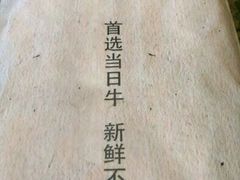 首选当日牛 新鲜不